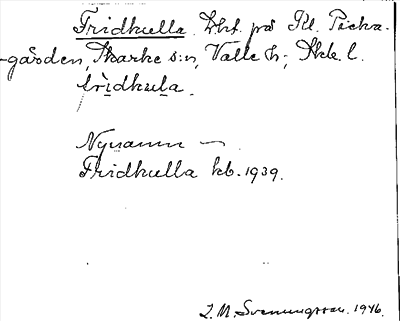 Fridkulla. Lht. på Kl. Picka-
-gården, Skarke s:n, Valle h:, Skb. l.
frìdkula.
Nynamn —
Fridkulla kb. 1939.
L. M. Svenungsson. 1946.